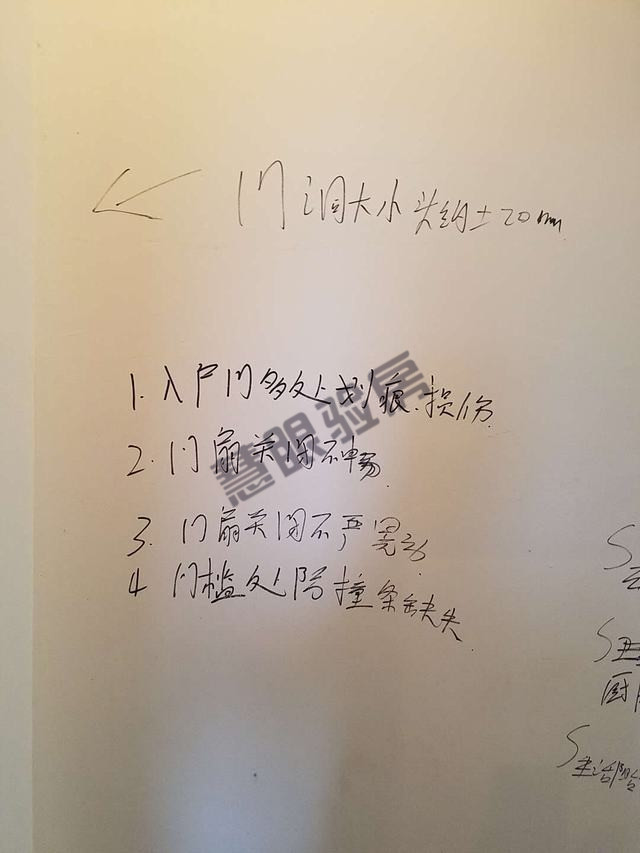 门洞大小头约±20mm
1.入户门多处划痕.损伤
2.门扇关闭不畅
3.门扇关闭不严晃动
4 门槛处防撞条缺失
慧眼验房
S
S
厨房
S生活阳台